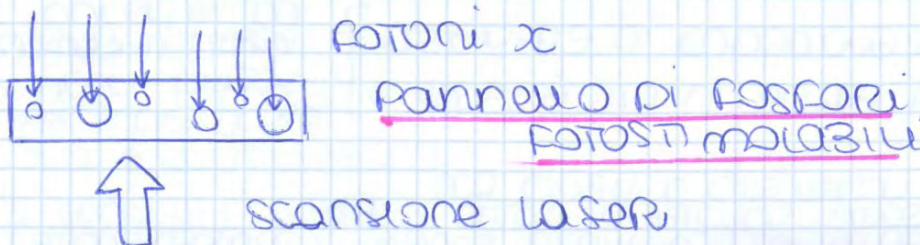 FOTONI X
PANNELLO DI FOSFORI
FOTOSTIMOLABILI
SCANSIONE LASER